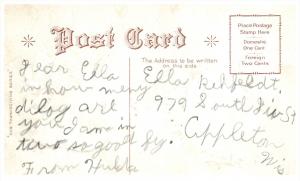 Post Card
Place Postage
Stamp Here
Domestic
One Cent
Foreign
Two Cents
The Address to be written
on this side
Dear Ella
in how meny
dilog are
you I am in
two so good by.
From Hulda
Ella Rehfeldt
979 South Div St
Appleton
Wis